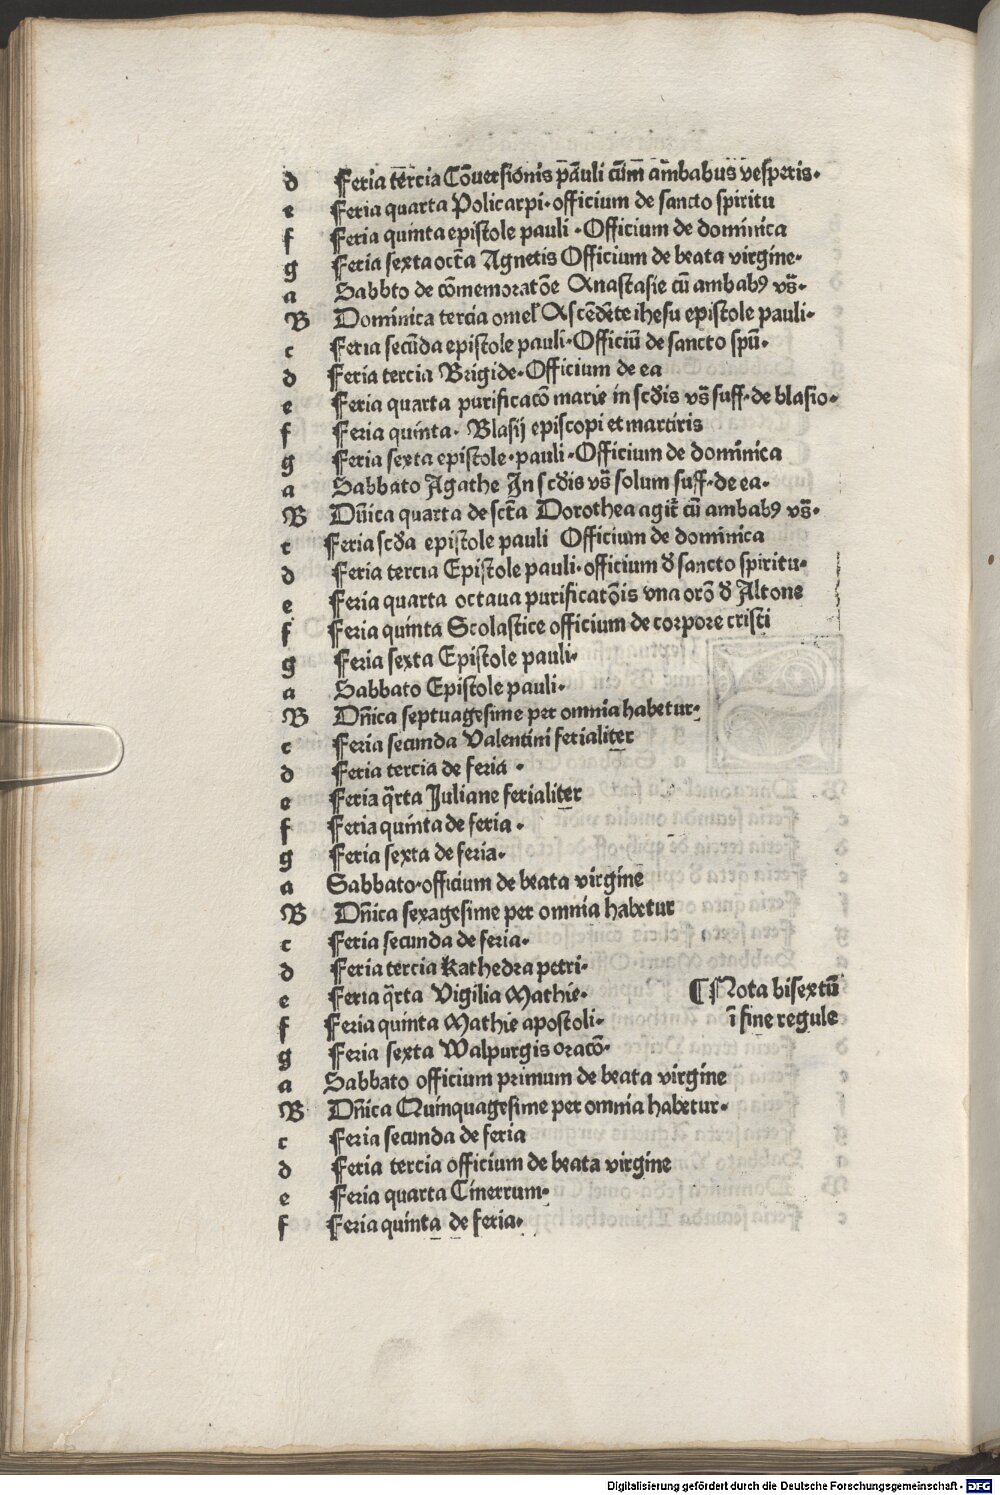 d Feria tercia Cōuersionis pauli cum ambabus vesperis.
e Feria quarta Policarpi. officium de sancto spiritu
f Feria quinta epistole pauli . Officium de dominica
g Feria sexta octa Agnetis Officium de beata virgine.
a Sabbto de cōmemoratōe Anastasie cū ambabꝰ vs̄.
B Dominica tercia omel' Ascēdēte ihesu epistole pauli.
c Feria secūda epistole pauli. Officiū de sancto spū.
d Feria tercia Brigide. Officium de ea
e Feria quarta purificacō marie in scd̄is vs̄ suff. de blasio.
f Feria quinta. Blasij episcopi et martiris
g Feria sexta epistole. pauli. Officium de dominica
a Sabbato Agathe In scd̄is vs̄ solum suff. de ea.
B Dn̄ica quarta de sct̄a Dorothea agit̄ cū ambabꝰ vs̄.
c Feria scd̄a epistole pauli Officium de dominica
d Feria tercia Epistole pauli. officium d̄ sancto spiritu.
e Feria quarta octaua purificatōis vna orō d̄ Altone
f Feria quinta Scolastice officium de corpore cristi
g Feria sexta Epistole pauli.
a Sabbato Epistole pauli.
B Dn̄ica septuagesime per omnia habetur.
c Feria secunda Valentini ferialiter
d Feria tercia de feria .
e Feria q̄rta Juliane ferialiter
f Feria quinta de feria .
g Feria sexta de feria.
a Sabbato. officium de beata virgine
B Dn̄ica sexagesime per omnia habetur
c Feria secunda de feria.
d Feria tercia Kathedra petri.
e Feria q̄rta Vigilia Mathie. ¶ Nota bisextū
f Feria quinta Mathie apostoli. ī fine regule
g Feria sexta Walpurgis oracō.
a Sabbato officium primum de beata virgine
B Dn̄ica Quinquagesime per omnia habetur.
c Feria secunda de feria
d Feria tercia officium de beata virgine
e Feria quarta Cinerrum.
f Feria quinta de feria.
Digitalisierung gefördert durch die Deutsche Forschungsgemeinschaft - DFG